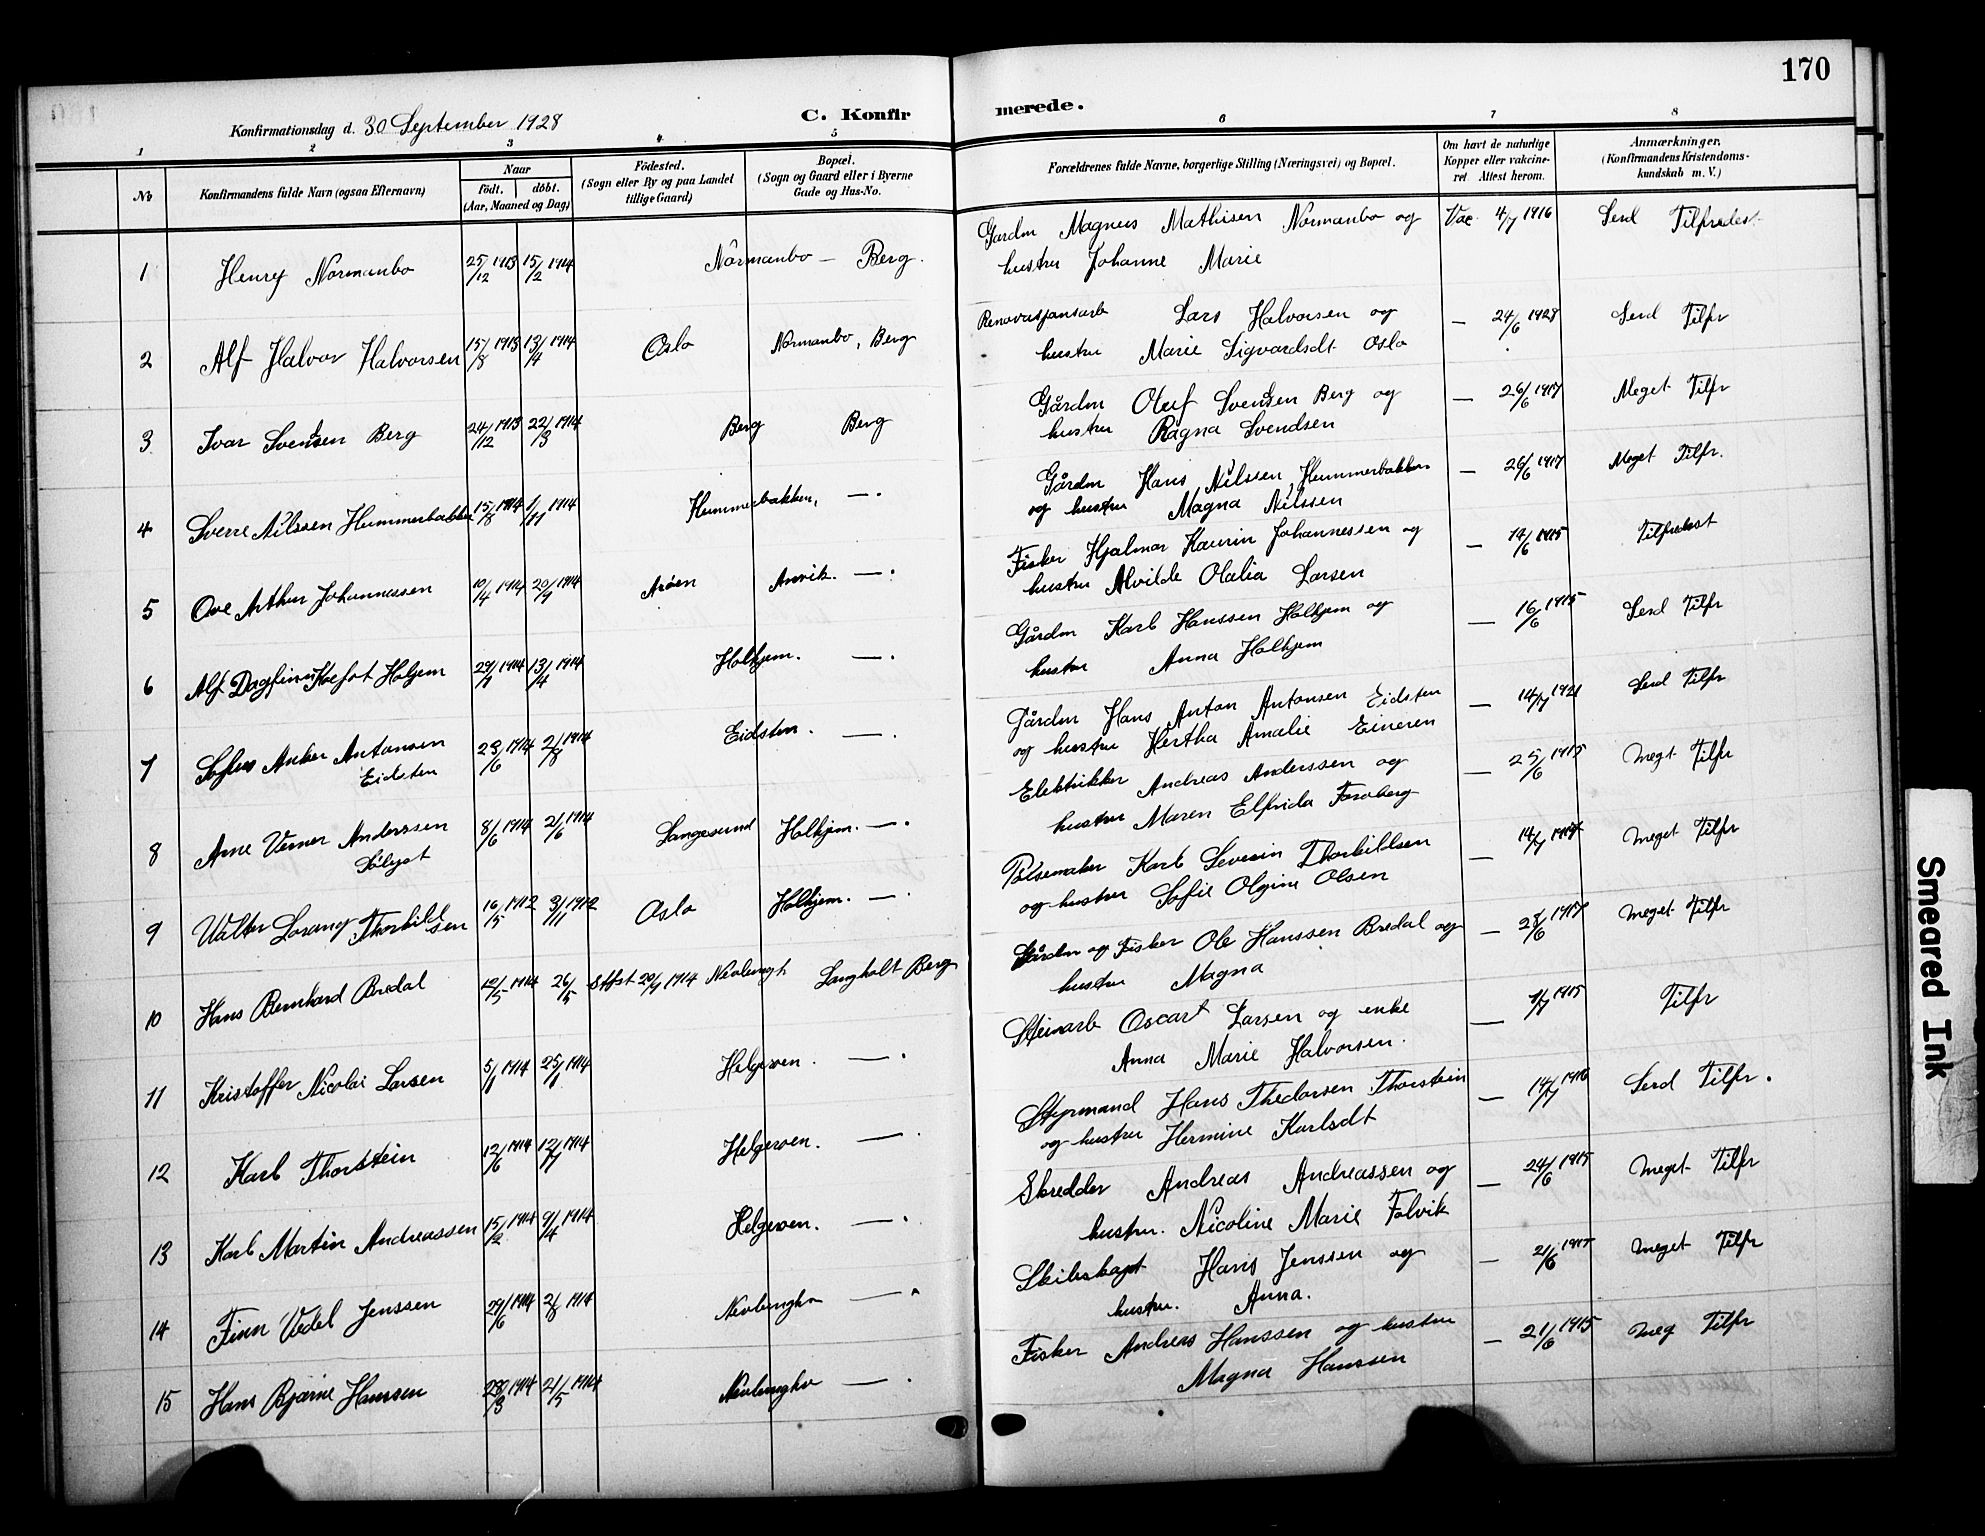 170
Konfirmationsdag d. 30 September 1928
C. Konfirmerede.
1 2 3 4 5 6 7 8
No
Konfirmandens fulde Navn (ogsaa Efternavn)
Naar
födt. döbt.
(Aar, Maaned og Dag)
Födested.
(Sogn eller By og paa Landet
tillige Gaard)
Bopæl.
(Sogn og Gaard eller i Byerne
Gade og Hus-No.
Forældrenes fulde Navne, borgerlige Stilling (Næringsvei) og Bopæl.
Om havt de naturlige
Kopper eller vakcine-
ret Attest herom.
Anmærkninger.
(Konfirmandens Kristendoms-
kundskab m. V.)
1 Henry Normanbo 25/12 1913 15/2 1914 Normanbo — Berg. Gardm Magnus Mathisen Normanbo og Vac. 4/7 1916 Serd Tilfredst.
hustru Johanne Marie
2 Alf Halvor Halvorsen 15/8 1913 13/4 1914 Oslo Normanbo, Berg Renovasjonsarb Lars Halvorsen og — 24/6 1928 Serd Tilfr
hustru Marie Sigvardsdt Oslo
3 Ivar Svendsen Berg 24/12 1913 22/3 1914 Berg Berg Gårdm Oluf Svendsen Berg og — 26/6 1917 Meget Tilfr
hustru Ragna Svendsen
4 Sverre Nilssen Hummerbakken 15/8 1914 1/11 1914 Hummerbakken, — . Gårdm Hans Nilssen, Hummerbakken — 26/6 1917 Meget Tilfr.
og hustru Magna Nilssen
5 Ove Arthur Johannessen 10/4 1914 20/7 1914 Aröen Arvik. — . Fisker Hjalmar Kaurin Johannessen og — 14/6 1915 Tilfredsst
hustru Alvilde Olalia Larsen
6 Alf Dagfinn Koefot Holjem 29/1 1914 13/4 1914 Holkjem. — . Gårdm Karl Hanssen Holkjem og — 16/6 1915 Serd Tilfr
hustru Anna Holkjem
7 Sofus Anker Antonsen 23/6 1914 2/8 1914 Eidsten. — . Gårdm Hans Anton Antonsen Eidsten — 14/7 1921 Serd Tilfr
Eidsten og hustru Hertha Amalie Eineren
8 Arne Verner Anderssen 8/6 1914 21/6 1914 Langesund Holkjem. — . Elektrikker Andreas Anderssen og — 25/6 1915 Megt Tilfr
Sölyst hustru Maren Elfrida Forsberg
9 Walter Lorang Thorkildsen 16/5 1912 3/11 1912 Oslo Holkjem. — . Pölsemaker Karl Severin Thorkildsen — 14/7 1917 Meget Tilfr
og hustru Sofie Olgine Olsen
10 Hans Bernhard Bredal 10/5 1914 26/5 Stfst 20/9 1914 Nevlungh Langholt Berg Gårdm og Fisker Ole Hanssen Bredal og — 28/6 1917 Meget Tilfr
hustru Magna
11 Kristoffer Nicolai Larsen 5/1 1914 25/1 1914 Helgeroen. — . Steinarb Oscar Larsen og enke — 1/7 1915 Tilfr
Anna Marie Halvorsen.
12 Karl Thorstein 12/6 1914 12/7 1914 Helgeroen. — . Styrmand Hans Thedorsen Thorstein — 14/7 1916 Serd Tilfr.
og hustru Hermine Karlsdt
13 Karl Martin Andreassen 15/2 1914 9/4 1914 Helgeroen. — . Skredder Andreas Andreassen og — 24/6 1915 Meget Tilfr
hustru. Nicoline Marie Falvik
14 Finn Vedel Jenssen 29/6 1914 2/8 1914 Nevlunghv — . Skibskapt Hans Jenssen og — 21/6 1915 Meget Tilfr
hustru. Anna.
15 Hans Bjarne Hanssen 28/3 1914 21/5 1914 Nevlunghv — . Fisker Andreas Hanssen og hustru — 21/6 1915 Meg Tilfr
Magna Hanssen
Smeared Ink